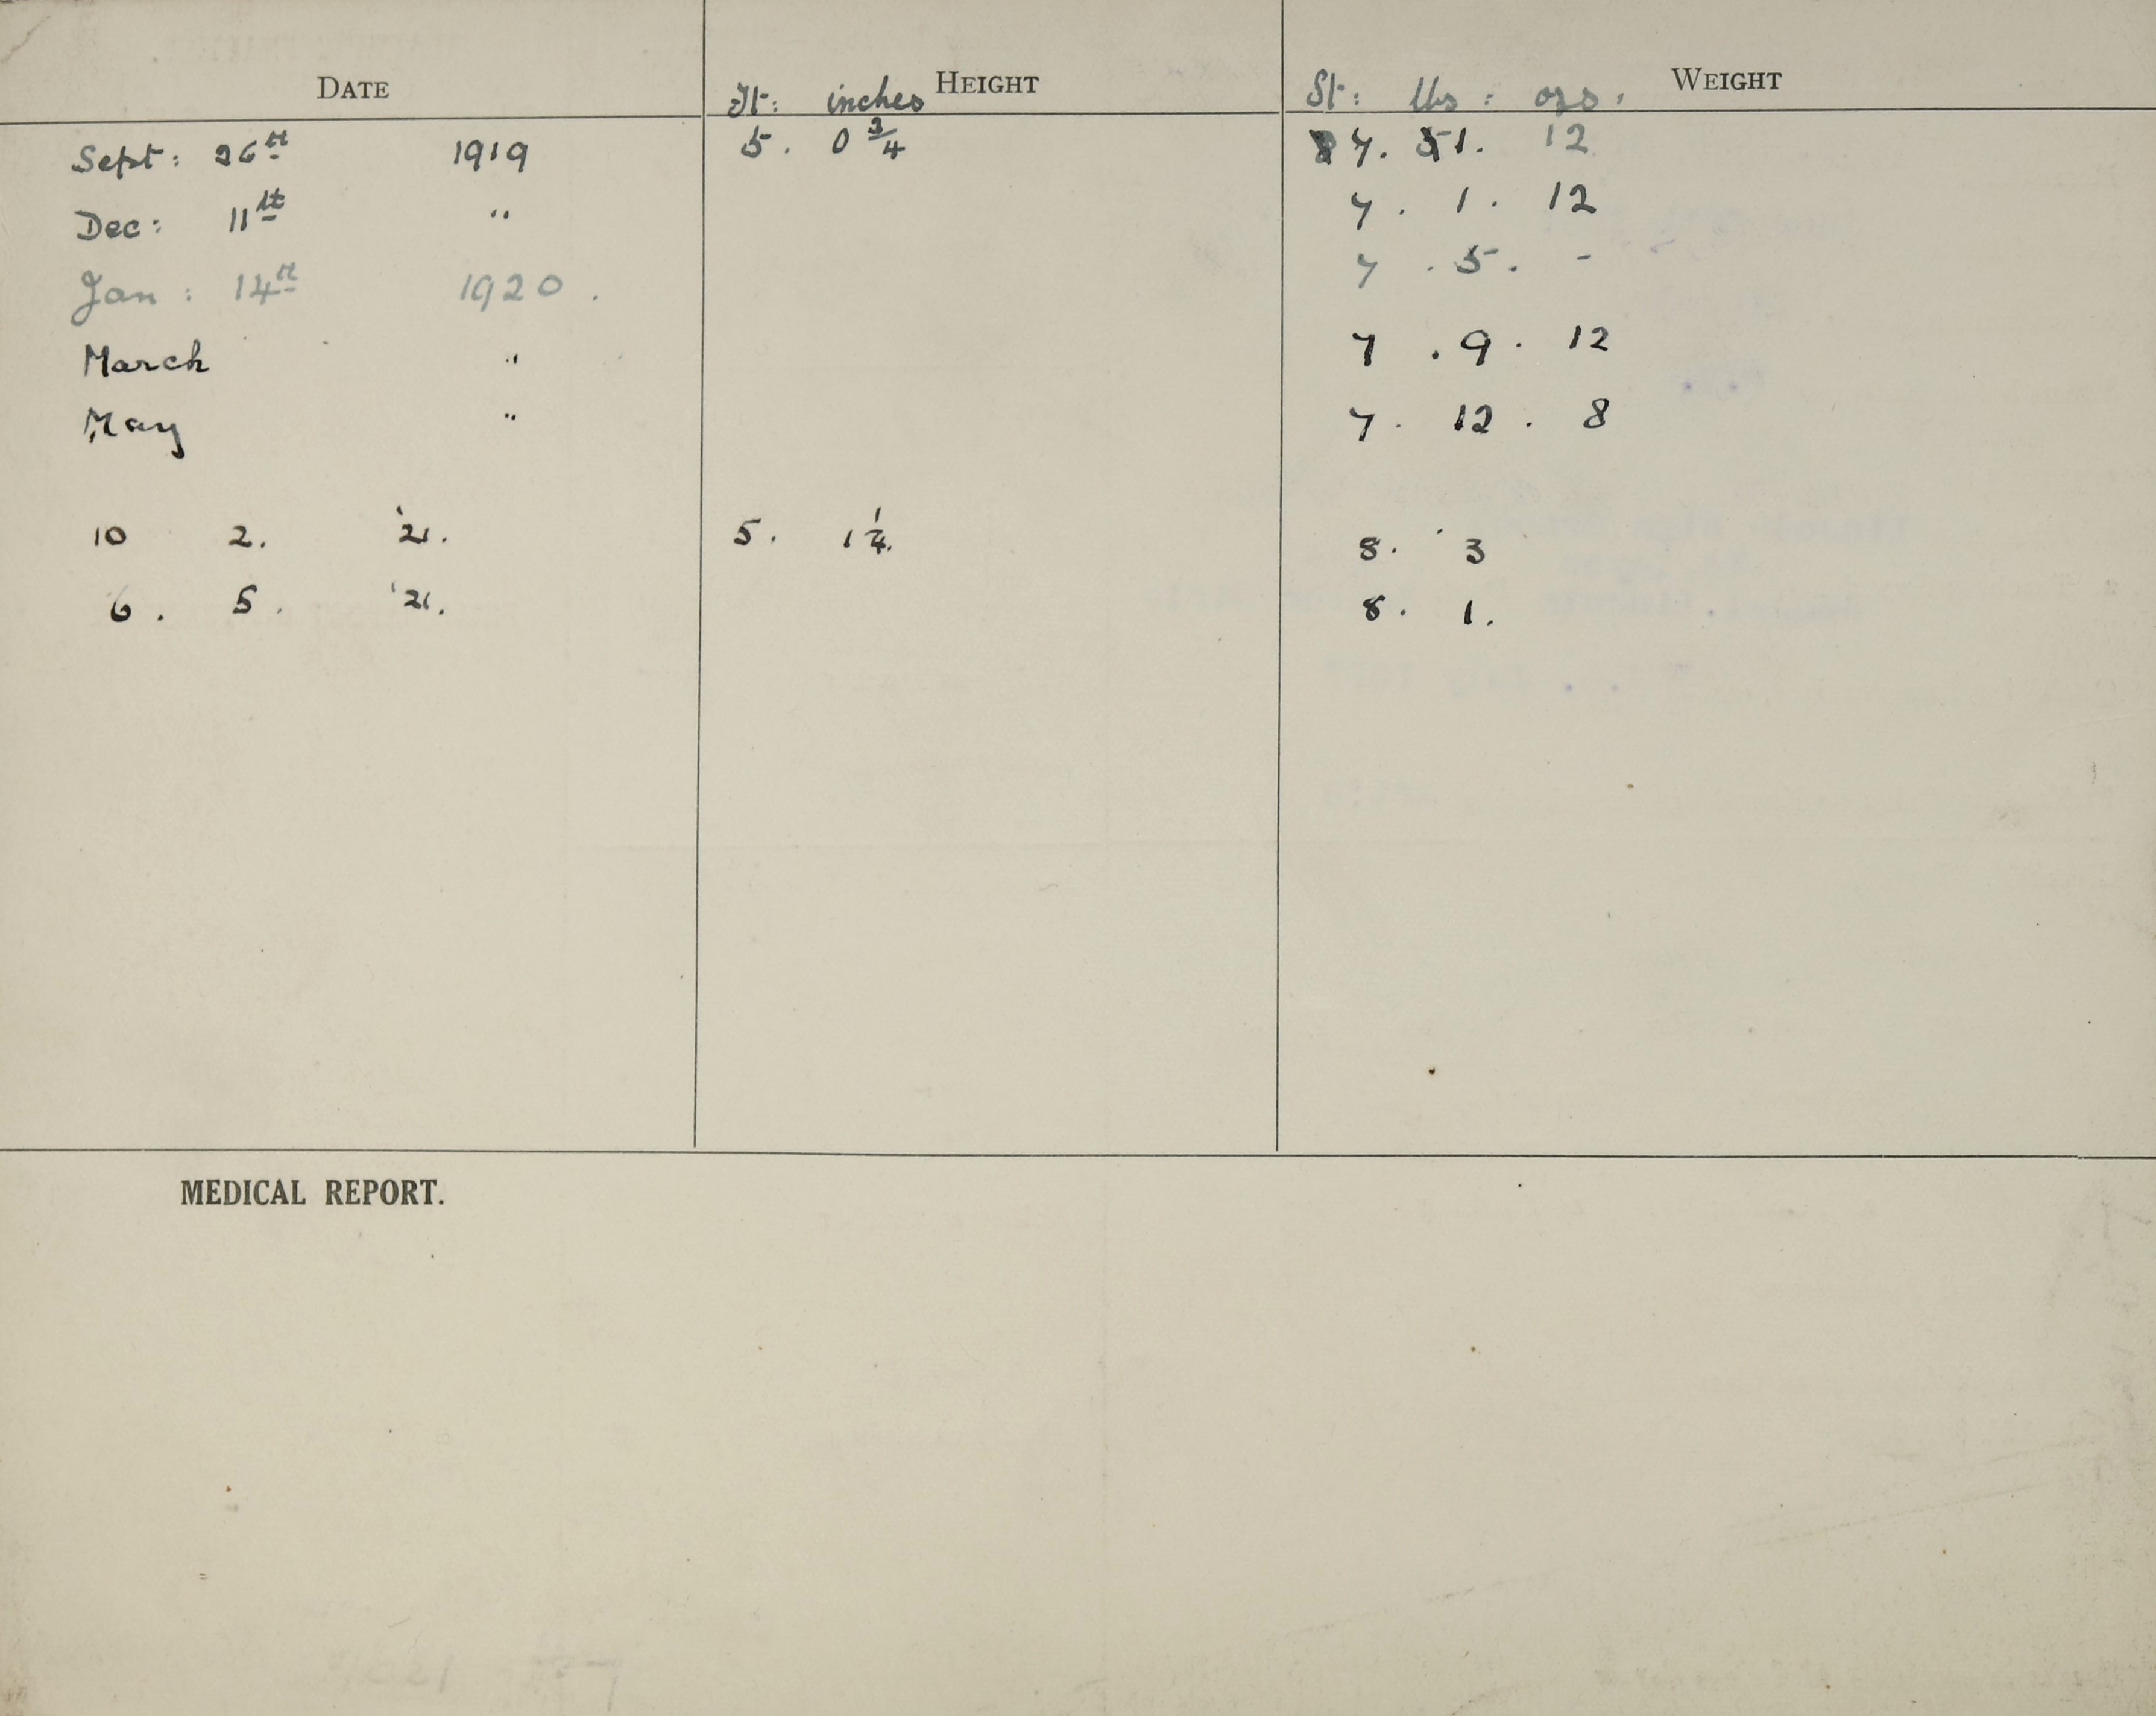 DATE Ft: inches HEIGHT St: lbs: ozs. WEIGHT
Sept: 26th 1919 5. 0 3/4 7. 1. 12
Dec: 11th " 7. 1. 12
Jan: 14th 1920. 7. 5. -
March " 7. 9. 12
May " 7. 12. 8
10 2. '21. 5. 1 1/4. 8. 3
6. 5. '21. 8. 1.
MEDICAL REPORT.